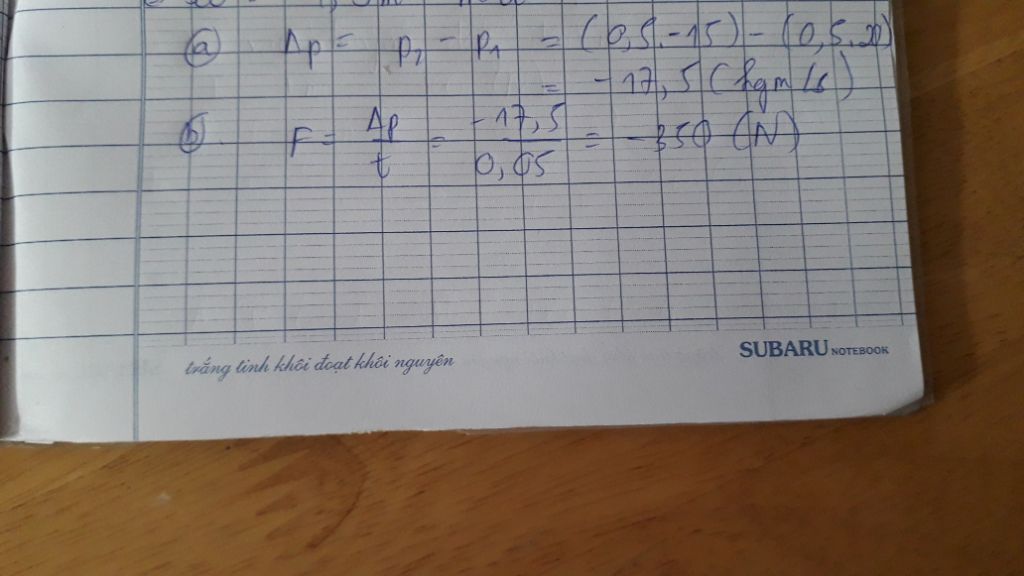 a Δp = p₂ - p₁ = (0,5.-15) - (0,5.20)
= -17,5 (kgm/s)
b F = Δp/t = -17,5/0,05 = -350 (N)
trắng tinh khôi đoạt khôi nguyên
SUBARU NOTEBOOK